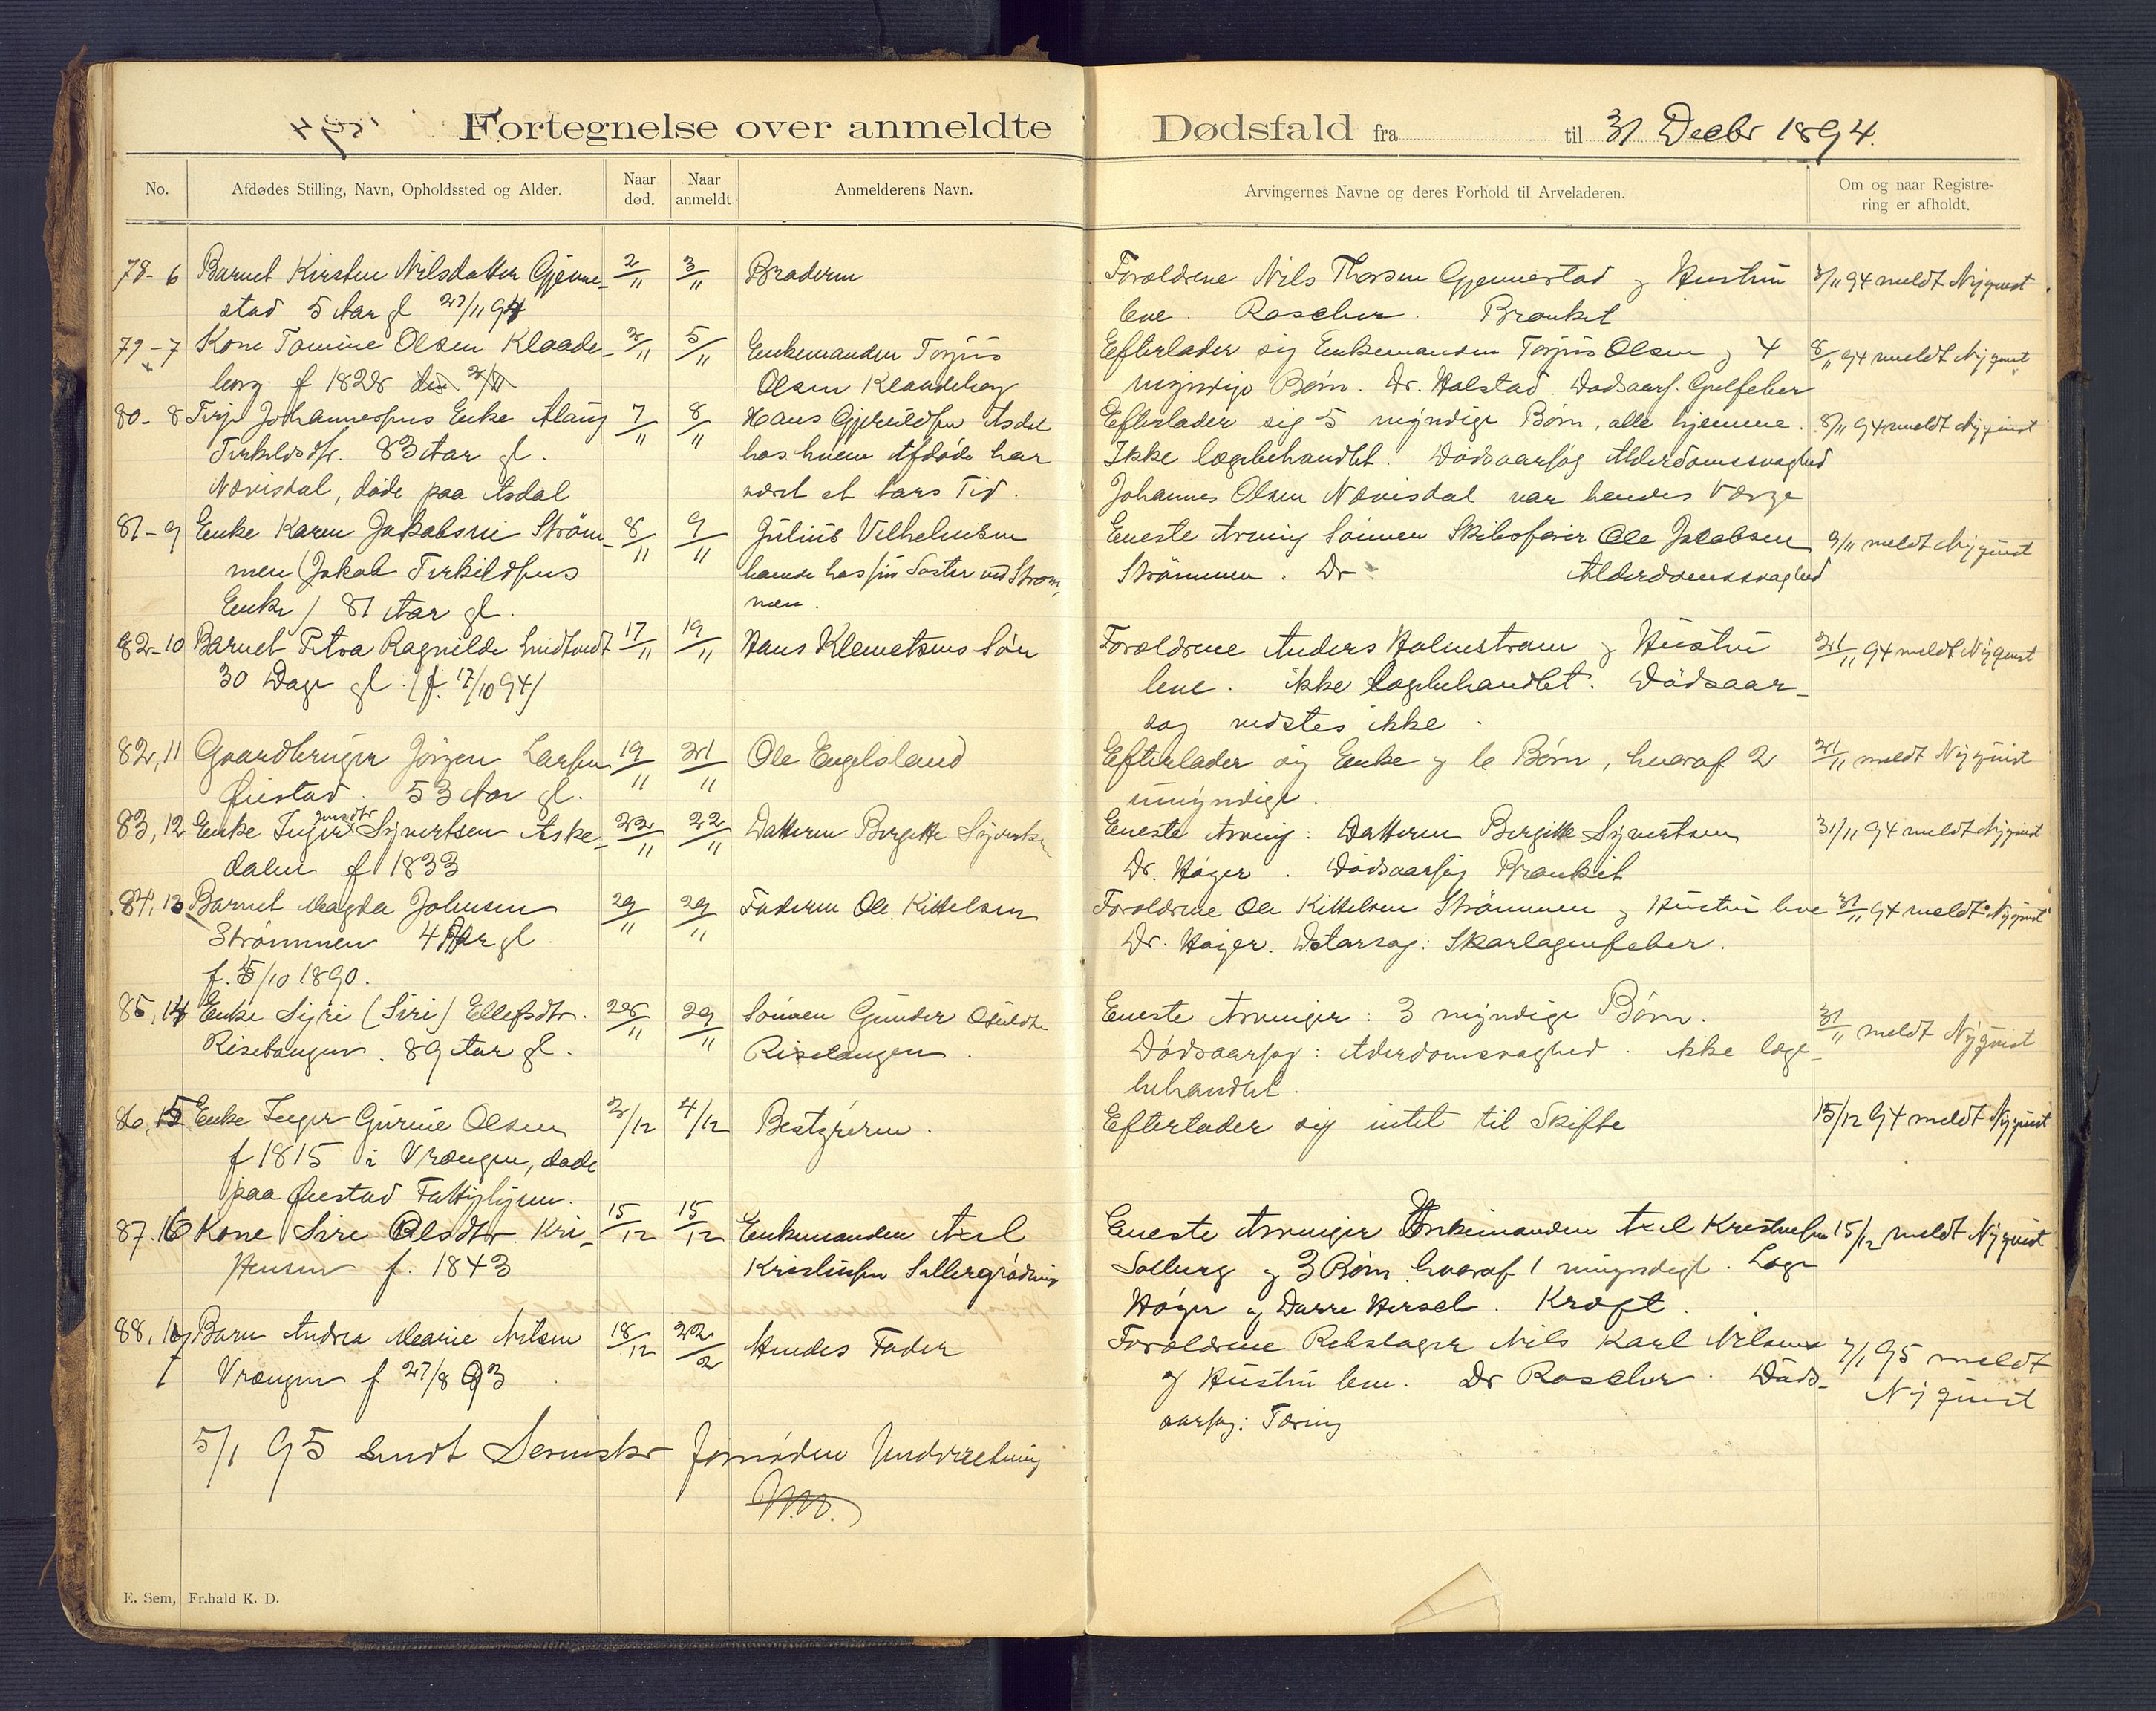 Fortegnelse over anmeldte Dødsfald fra til 31 Decbr 1894.
No.
Afdødes Stilling, Navn, Opholdssted og Alder.
Naar død.
Naar anmeldt
Anmelderens Navn.
Arvingernes Navne og deres Forhold til Arveladeren.
Om og naar Registrering er afholdt.
78-6 Barnet Kirsten Nilsdatter Gjenne- 2/11 3/11 Broderen Forældrene Nils Thorsen Gjennestad og Hustru 3/11 94 meldt Nyquist
stad 5 Aar gl 27/11 94 leve. Roscher. Bronkit
79-7 Kone Tomine Olsen Klaade- 2/11 5/11 Enkemanden Torjus Efterlader sig Enkemanden Torjus Olsen og 4 8/11 94 meldt Nyquist
borg f 1828 Olsen Klaadeborg myndige Børn. Dr. Holstad Dødsaars. Gulfeber
80-8 Terje Johannesens Enke Alaug 7/11 8/11 Hans Gjeruldsen Asdal Efterlader sig 5 myndige Børn, alle hjemme. 8/11 94 meldt Nyquist
Terkildsdtr. 83 Aar gl. hos hvem Afdøde har Ikke lægebehandlet. Dødsaarsag Alderdomssvaghed
Nævisdal, døde paa Asdal været et Aars Tid. Johannes Olsen Nævisdal var hendes Værge
81-9 Enke Karen Jakobsen Strøm- 8/11 9/11 Julius Vilhelmsen Eneste Arving Sønnen Skibsfører Ole Jacobsen 9/11 meldt Nyquist
men (Jakob Terkildsens hjemme hos sin Søster ved Strøm- Strømmen. Dr Alderdomssvaghed
Enke) 81 Aar gl. men.
82-10 Barnet Petra Ragnilde Lindtvedt 17/11 19/11 Hans Klemetsens Søn Forældrene Anders Holmstrøm og Hustru 21/11 94 meldt Nyquist
30 Dage gl. (f. 17/10 94) leve. ikke lægebehandlet. Dødsaar-
sag vidstes ikke.
82,11 Gaardbruger Jørgen Larsen 19/11 21/11 Ole Engelsland Efterlader sig Enke og 6 Børn, hvoraf 2 21/11 meldt Nyquist
Øiestad. 53 Aar gl. umyndige.
83,12 Enke Inger Syvertsen Aske- 22/11 22/11 Datteren Borgitte Syvertsen Eneste Arving: Datteren Bergitte Syvertsen 31/11 94 meldt Nyquist
dalen f 1833 Dr. Høyer. Dødsaarsag Bronkit
84,13 Barnet Magda Johnsen 29/11 29/11 Faderen Ole Kittelsen Forældrene Ole Kittelsen Strømmen og Hustru leve 31/11 94 meldt Nyquist
Strømmen 4 Aar gl. Dr. Høyer. Skarlagensfeber.
f. 5/10 1890.
85,14 Enke Syri (Siri) Ellefsdtr. 28/11 29/11 Sønnen Gunder Eneste Arvinger: 3 myndige Børn. 31/11 meldt Nyquist
Riselangen. 89 Aar gl. Riselangen. Dødsaarsag: Alderdomsvaghed. ikke læge-
behandlet.
86,15 Enke Inger Gurine Olsen 2/12 4/12 Bestyreren. Efterlader sig intet til Skifte 15/12 94 meldt Nyquist
f 1815 i Vrængen, døde
paa Øiestad Fattighjem.
87.16 Kone Siri Olsdtr Kri- 15/12 15/12 Enkemanden Axel Eneste Arvinger Enkemanden Axel Kristiansen 15/12 meldt Nyquist
stensen f. 1843 Solberg og 3 Børn hvoraf 1 umyndigt. Læge
Høyer og Kræft.
88,17 Barn Andrea Marie Nilsen 18/12 22/2 Hendes Fader Forældrene Rebslager Nils Karl Nilsen 7/1 95 meldt
Vrængen f 27/8 93 og Hustru leve. Dr Roscher. Døds- Nyquist
aarsag: Tæring
5/1 95 sendt fornøden Underretning
E. Sem, Fr.hald K. D.